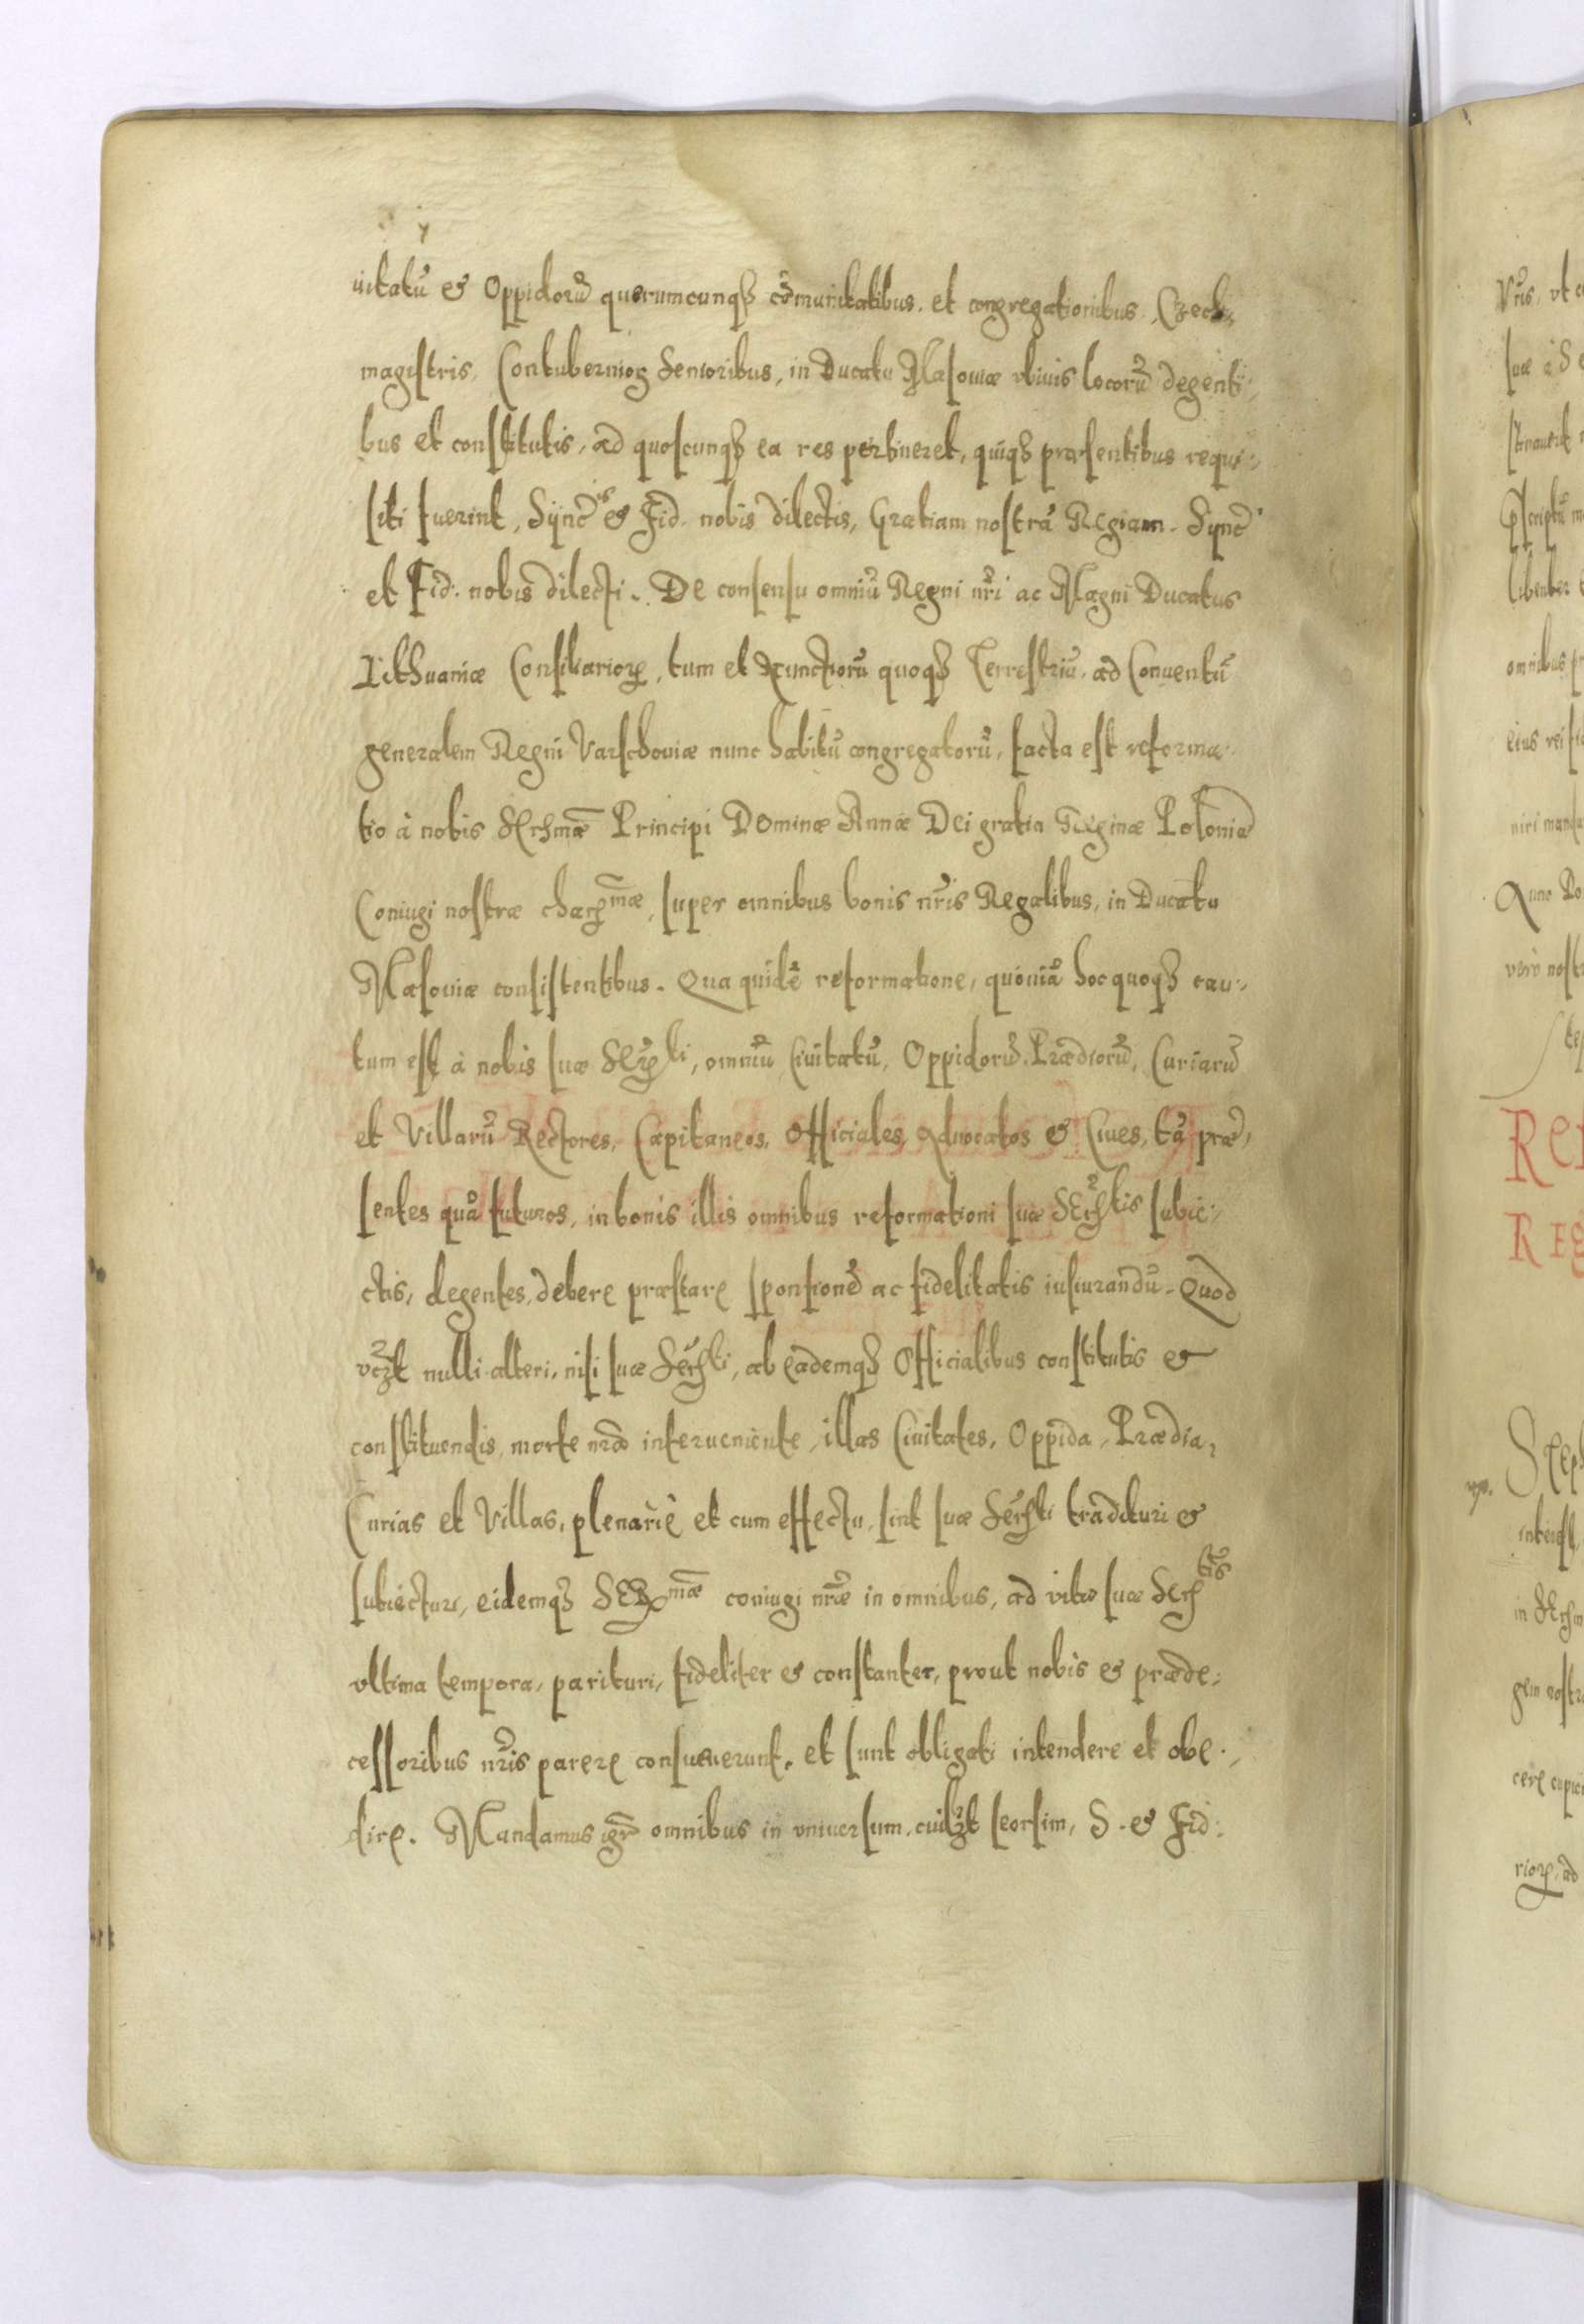 uitatū et Oppidorū quorumcunqȝ cōmunitatibus. et congregationibus, Czech-
magistris, Contubernioꝝ Senioribus, in Ducatu Masouiæ vbiuis locorū degenti-
bus et constitutis, ad quoscunqȝ ea res pertineret, quiqȝ præsentibus requi-
siti fuerint, Syncis et Fid. nobis dilectis, Gratiam nostrā Regiam. Sync
et Fid. nobis dilecti. De consensu omniū Regni nr̄i ac Magni Ducatus
Lithuaniæ Consiliarioꝝ, tum et Nunctiorū quoqȝ Terrestriū, ad Conuentū
generalem Regni Varschouiæ nunc habitū congregatorū, facta est reforma-
tio à nobis Serᵐæ Principi Dominæ Annæ Dei gratia Reginæ Poloniæ
Coniugi nostræ charᵐæ, super omnibus bonis nr̄is Regalibus, in Ducatu
Masouiæ consistentibus. Qua quidē reformatione, quoniā hoc quoqȝ cau-
tum est à nobis suæ Serti, omniū Ciuitatū, Oppidorū, Prædiorū, Curiarū
et Villarū Rectores, Capitaneos, Officiales, Aduocatos et Ciues, tā præ-
sentes quā futuros, in bonis illis omnibus reformationi suæ Sertis subie-
ctis, degentes, debere præstare sponsionē ac fidelitatis iusiurandū. Quod
vczt nulli alteri, nisi suæ Serti, ab eademqȝ Officialibus constitutis et
constituendis, morte nr̄a interueniente, illas Ciuitates, Oppida, Prædia,
Curias et Villas, plenariè et cum effectu, sint suæ Serti tradituri et
subiecturi, eidemqȝ Serᵐæ coniugi nr̄æ in omnibus, ad vitæ suæ Sertis
vltima tempora, parituri, fideliter et constanter, prout nobis et præde-
cessoribus nr̄is parere consueuerunt, et sunt obligati intendere et obe-
dire. Mandamus igr̄ omnibus in vniuersum, cuilȝt seorsim, S. et Fid.